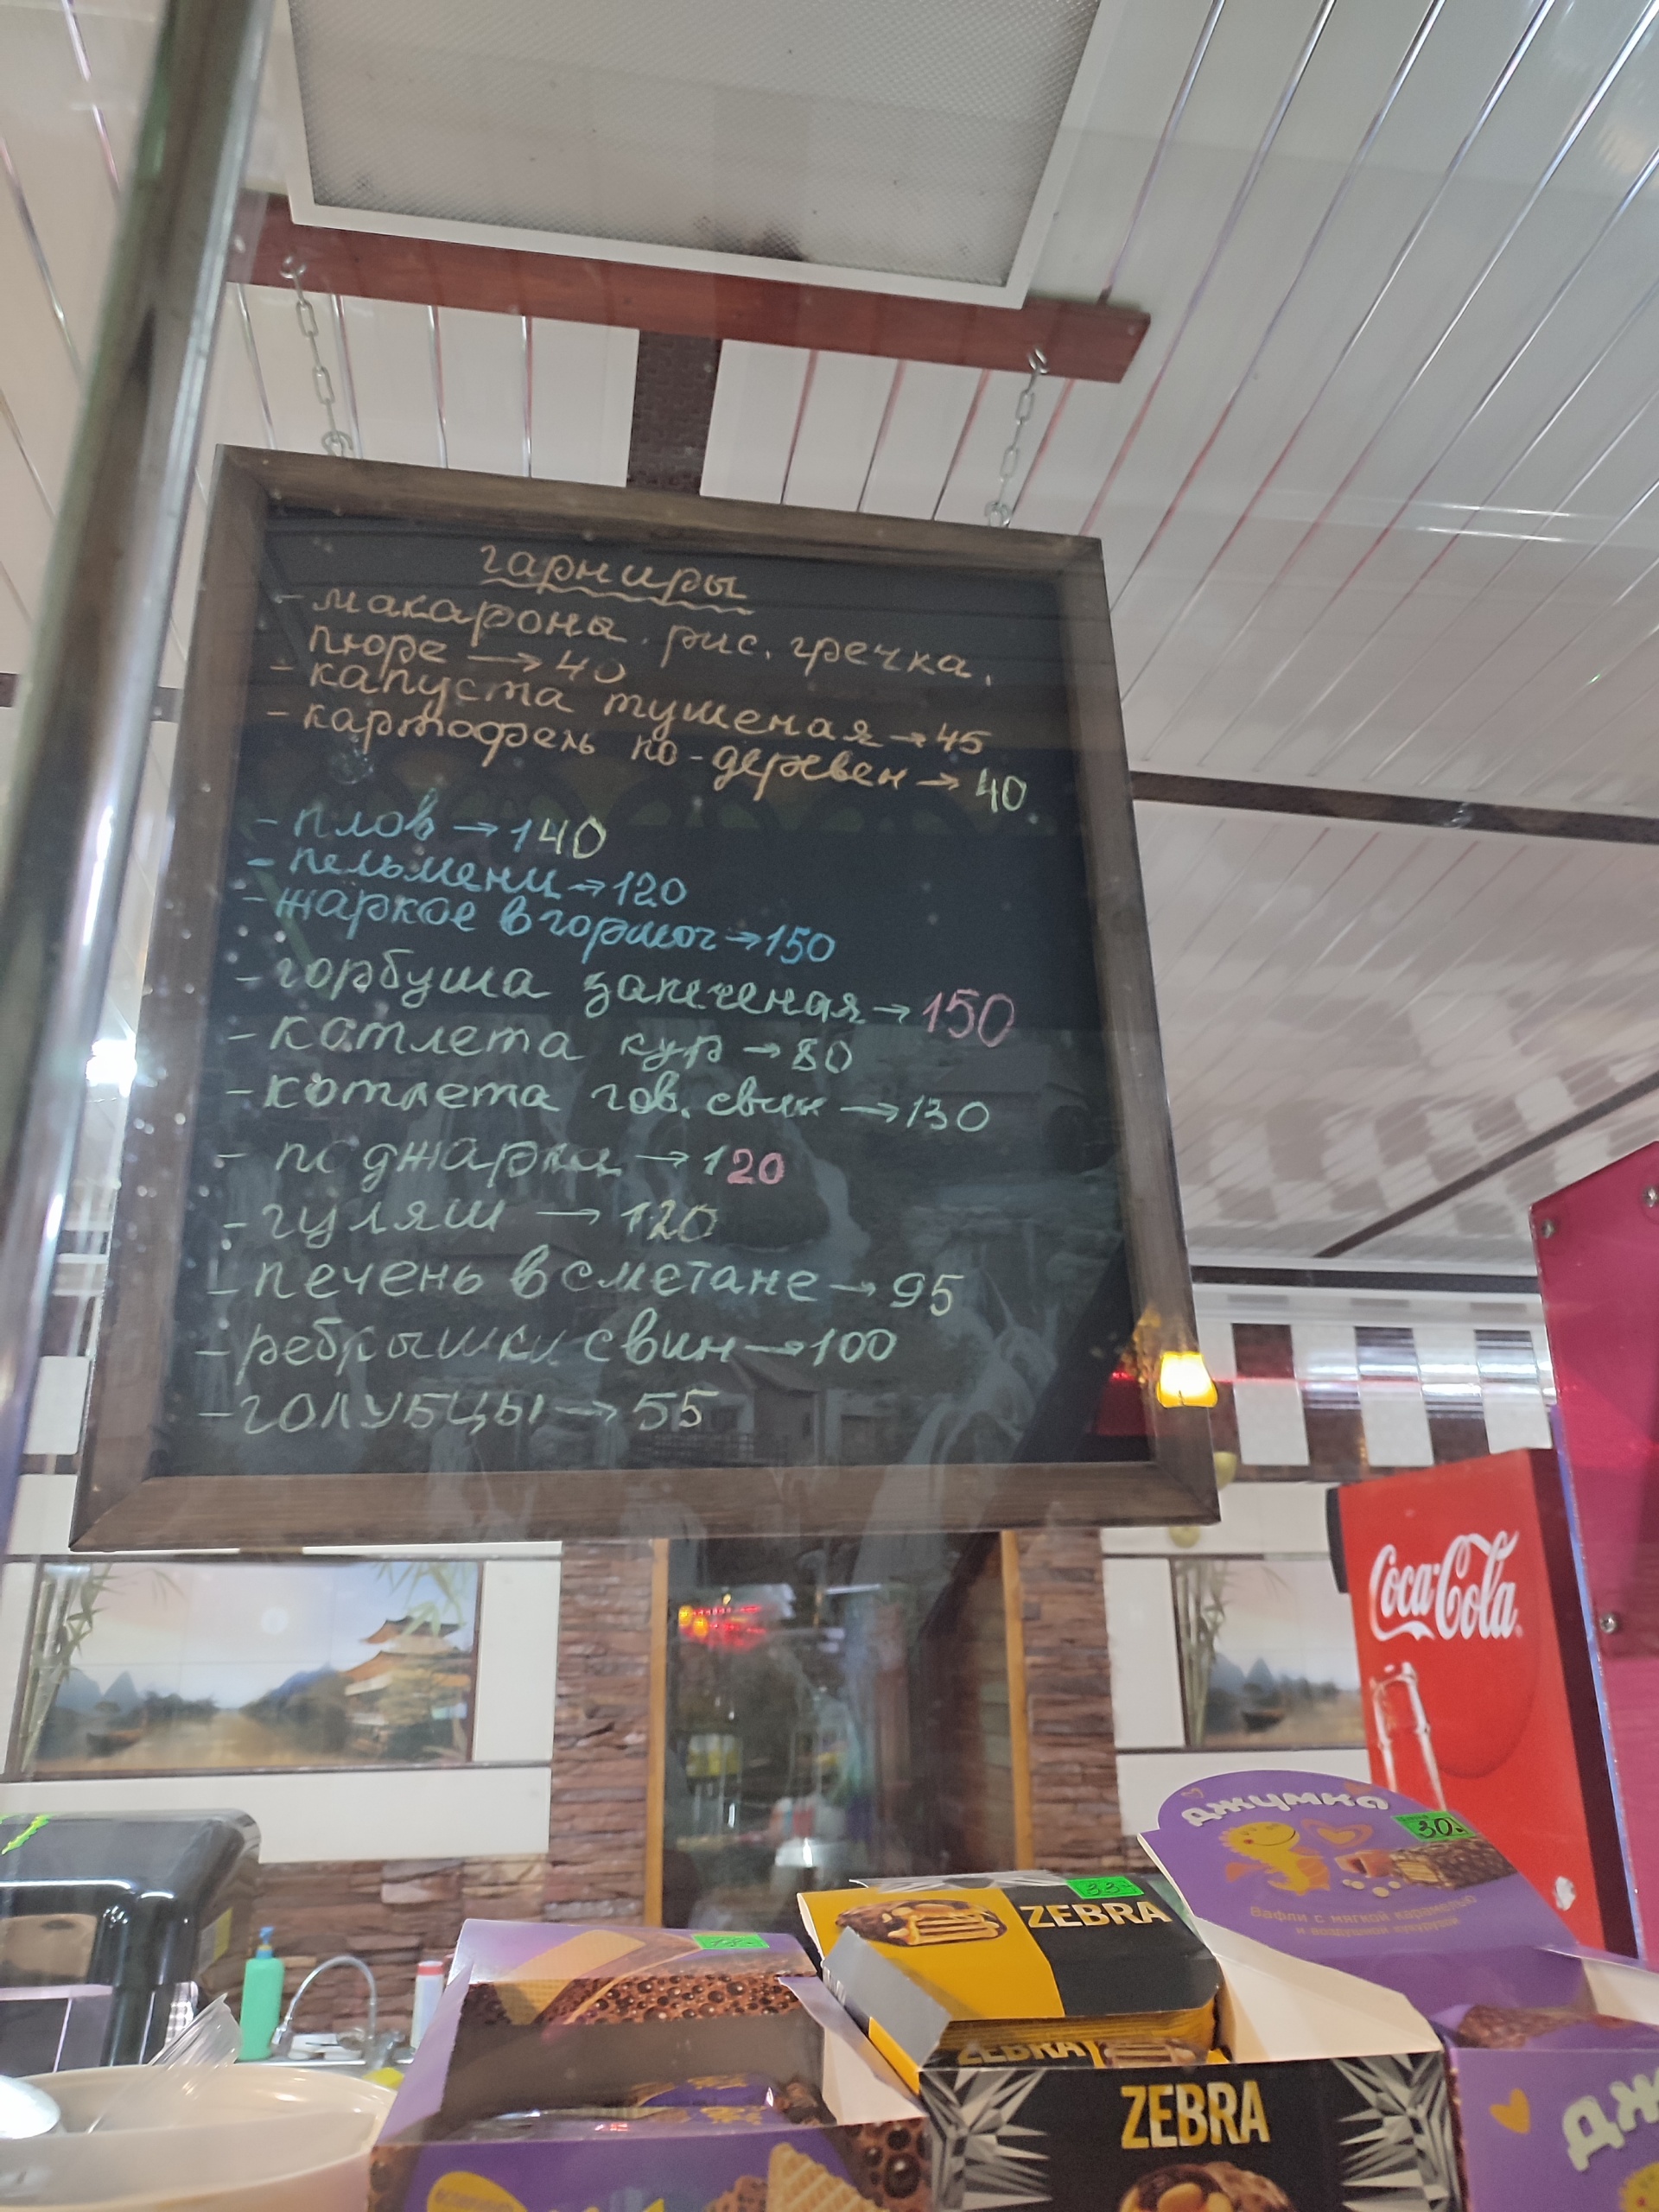 гарниры
- макароны. рис. гречка.
пюре → 40
- капуста тушеная → 45
- картофель по-деревен → 40
- плов → 140
- пельмени → 120
- жаркое в горшоч → 150
- горбуша запеченая → 150
- котлета кур → 80
- котлета гов. свин → 130
- поджарка → 120
- гуляш → 120
- печень в сметане → 95
- ребрышки свин → 100
- ГОЛУБЦЫ → 55
Coca-Cola
джумка
30
Вафли с мягкой карамелью
и воздушной кукурузой
33
ZEBRA
ZEBRA
ZEBRA